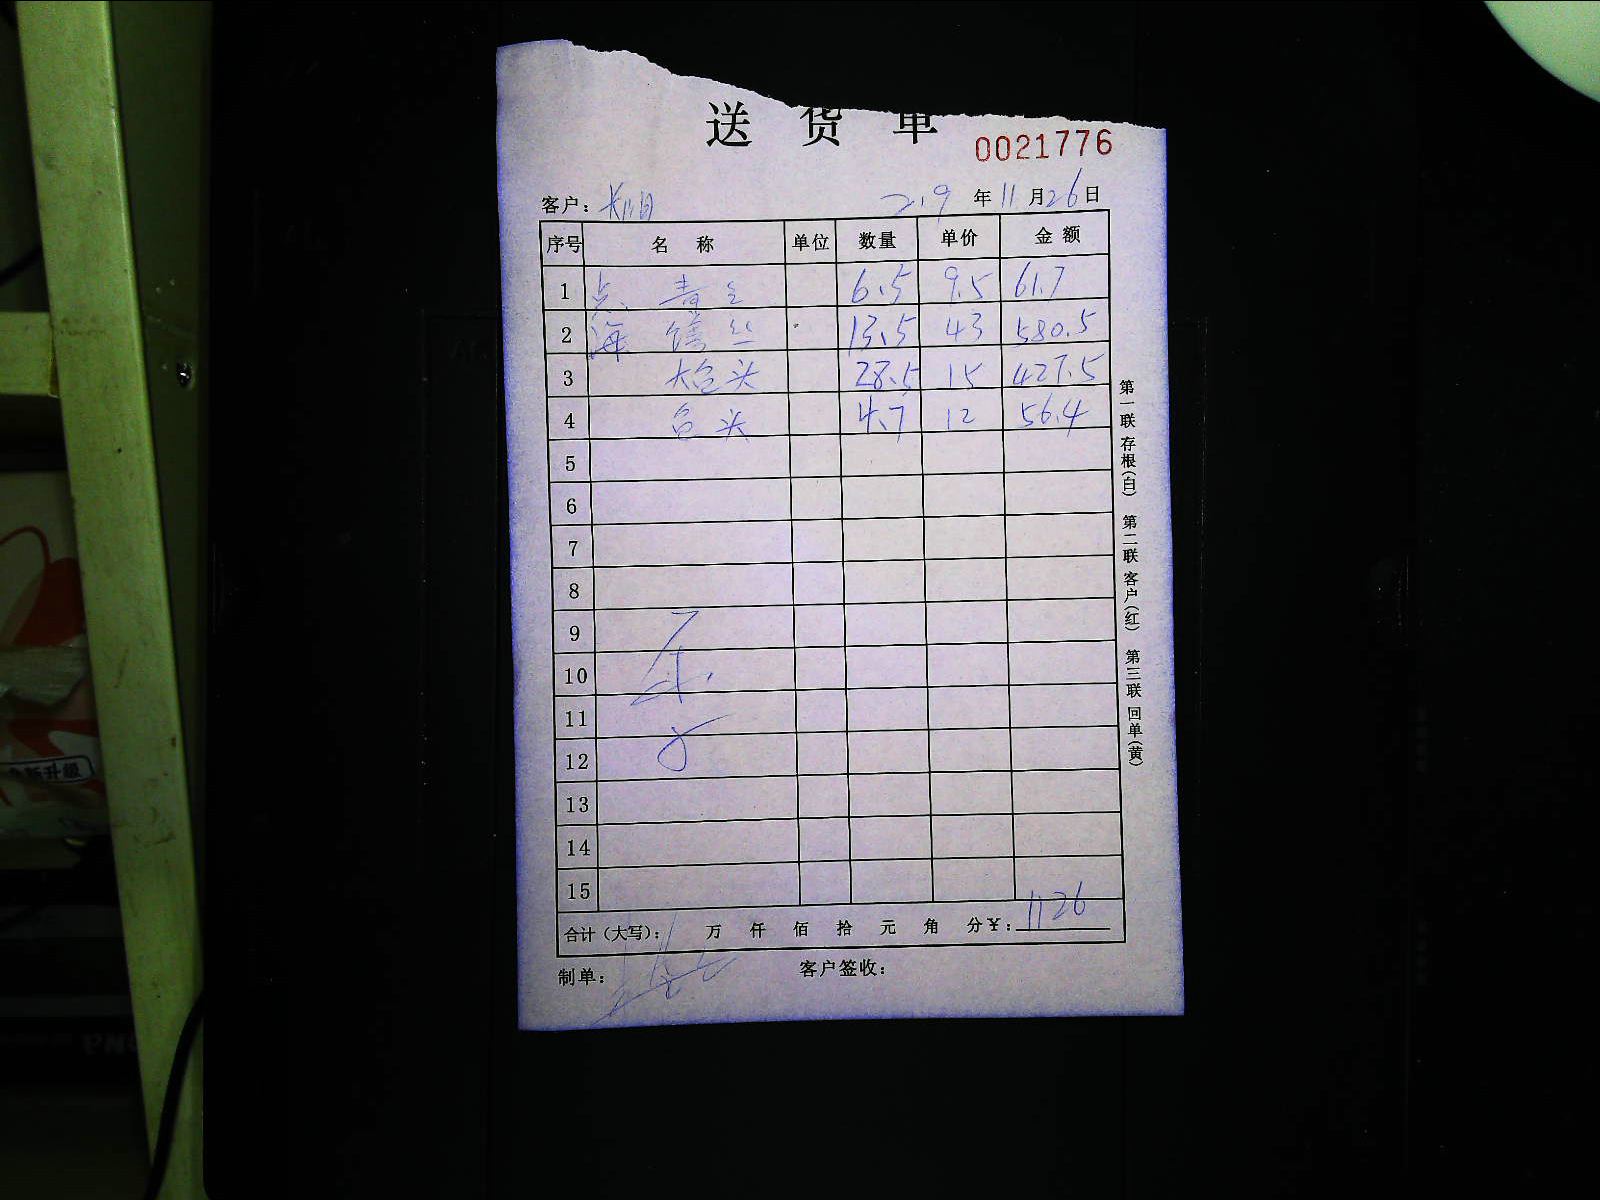 送货单
0021776
客户： 219年11月26日
序号 名称 单位 数量 单价 金额
1 6.5 9.5 61.7
2 海 丝 13.5 43 580.5
3 大台头 28.5 15 427.5
4 台头 4.7 12 56.4
5
6
7
8
9
10
11
12
13
14
15
合计（大写）： 万 仟 佰 拾 元 角 分￥：1126
制单： 客户签收：
第一联存根（白） 第二联客户（红） 第三联回单（黄）
新升级